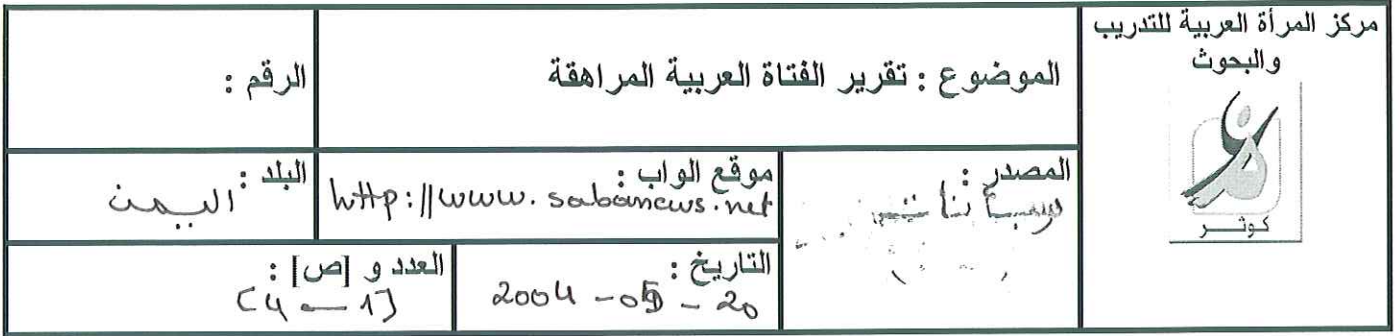 مركز المرأة العربية للتدريب
والبحوث
كوثر
الموضوع : تقرير الفتاة العربية المراهقة
الرقم :
المصدر :
موقع الواب :
http://www.sabanews.net
البلد :
اليمن
التاريخ :
2004 - 05 - 20
العدد و [ص] :
[1 — 4]